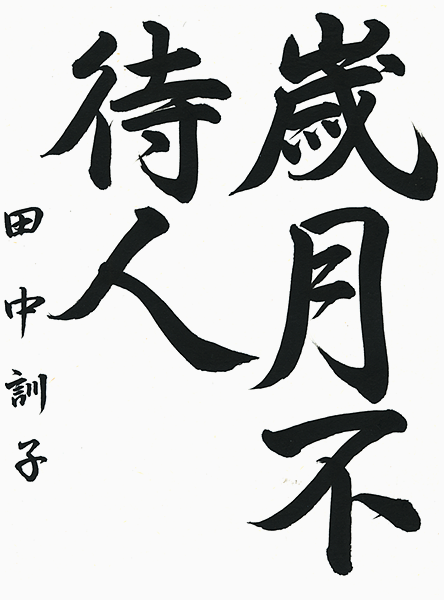 歳月不
待人
田中訓子